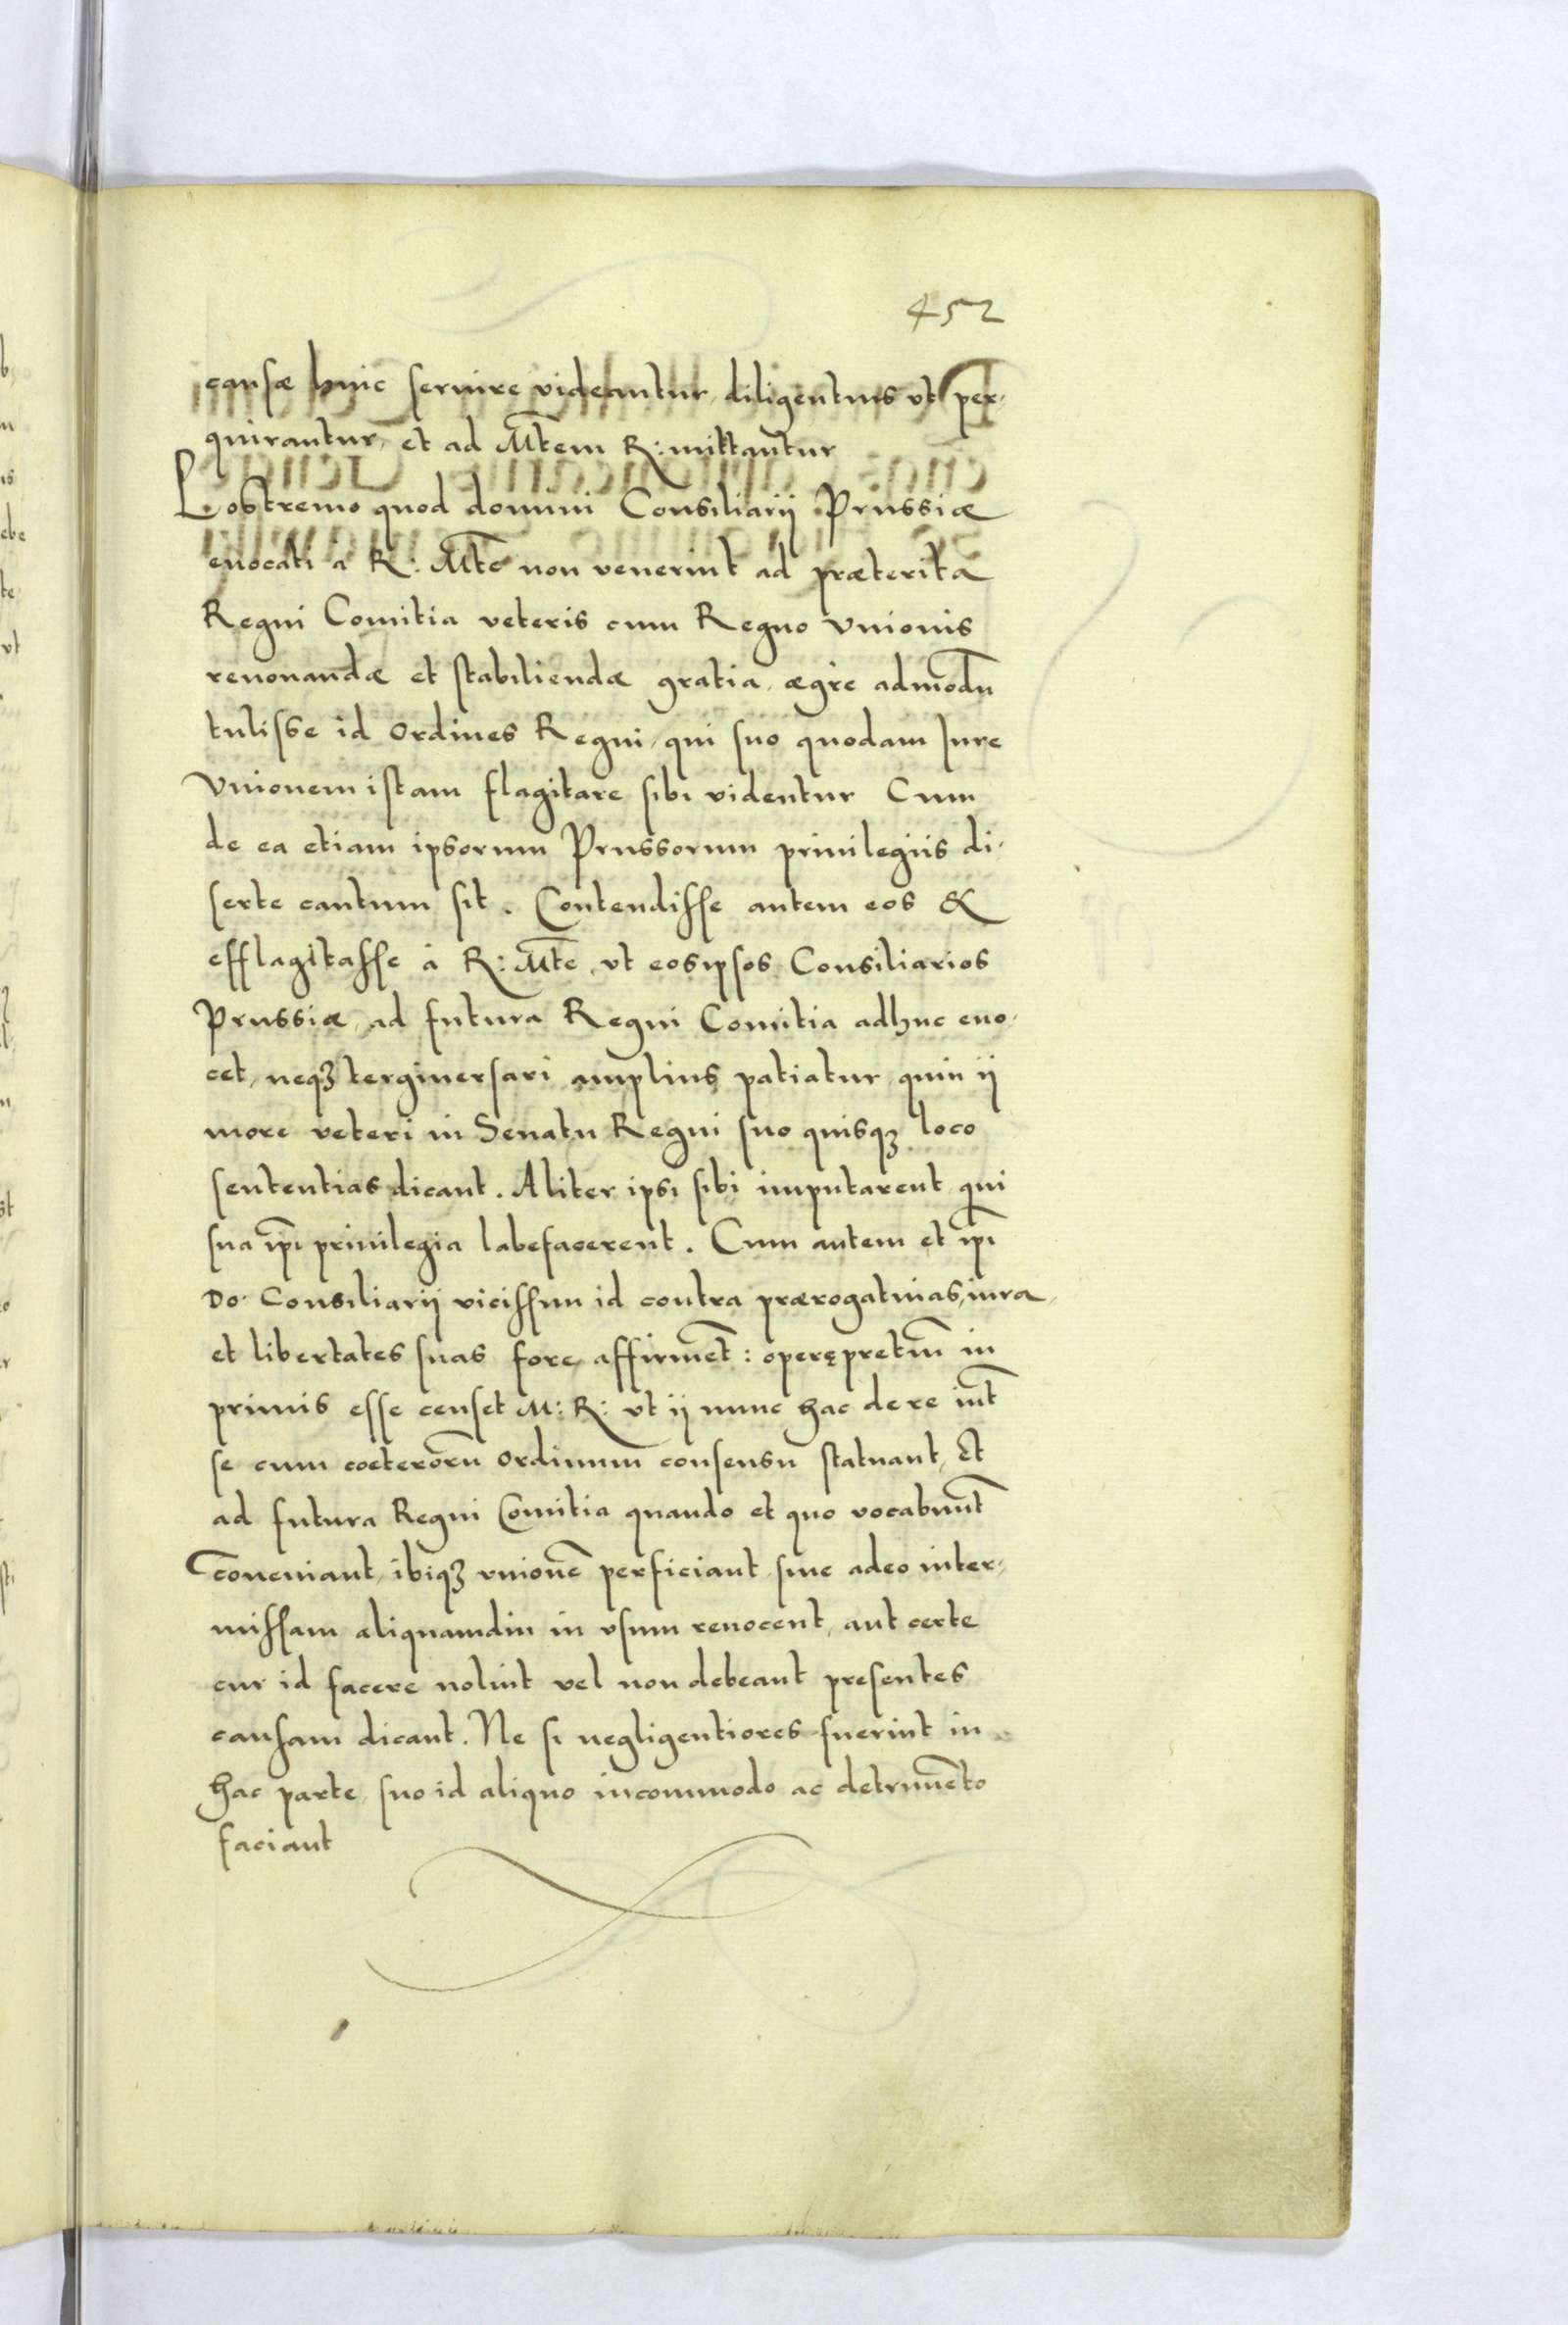 452
causæ huic seruire videantur, diligentius vt per-
quirantur, et ad Mtem R: mittantur
Postremo quod domini Consiliarij Prussiæ
euocati a R: Mte non venerint ad præterita
Regni Comitia veteris cum Regno vnionis
renouandæ et stabiliendæ gratia, ægre admodū
tulisse id Ordines Regni, qui suo quodam Iure
Vnionem istam flagitare sibi videntur Cum
de ea etiam ipsorum Prussorum priuilegiis di-
serte cautum sit. Contendisse autem eos &
efflagitasse à R: Mte, vt eos ipsos Consiliarios
Prussiæ, ad futura Regni Comitia adhuc euo-
cet, neqꝫ terginersari amplius patiatur, quin ij
more veteri in Senatu Regni suo quisqꝫ loco
sententias dicant. Aliter ipsi sibi imputarent qui
sua ip̄i priuilegia labefacerent. Cum autem et ip̄i
Do. Consiliarij vicissim id contra prærogatiuas, iura,
et libertates suas fore affirmēt: operępretiū in
primis esse censet M: R: vt ij nunc hac de re int̄
se cum coeterorū ordinum consensu statuant, Et
ad futura Regni Comitia quando et quo vocabunt̄
Conueniant, ibiqꝫ vnionē perficiant, siue adeo inter-
missam aliquamdiu in vsum reuocent, aut certe
cur id facere nolint vel non debeant presentes
causam dicant. Ne si negligentiores fuerint in
hac parte, suo id aliquo incommodo ac detrimēto
faciant